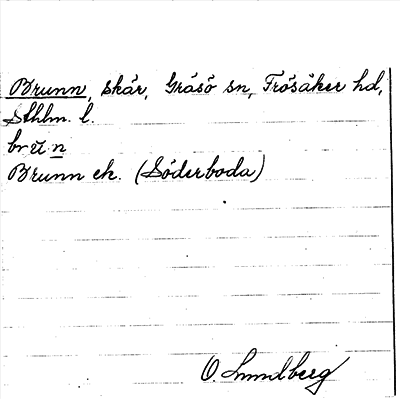 Brunn, skär, Gräsö sn, Frösåker hd,
Sthlm. l.
brun
Brunn ek. (Söderboda)
O. Lundberg